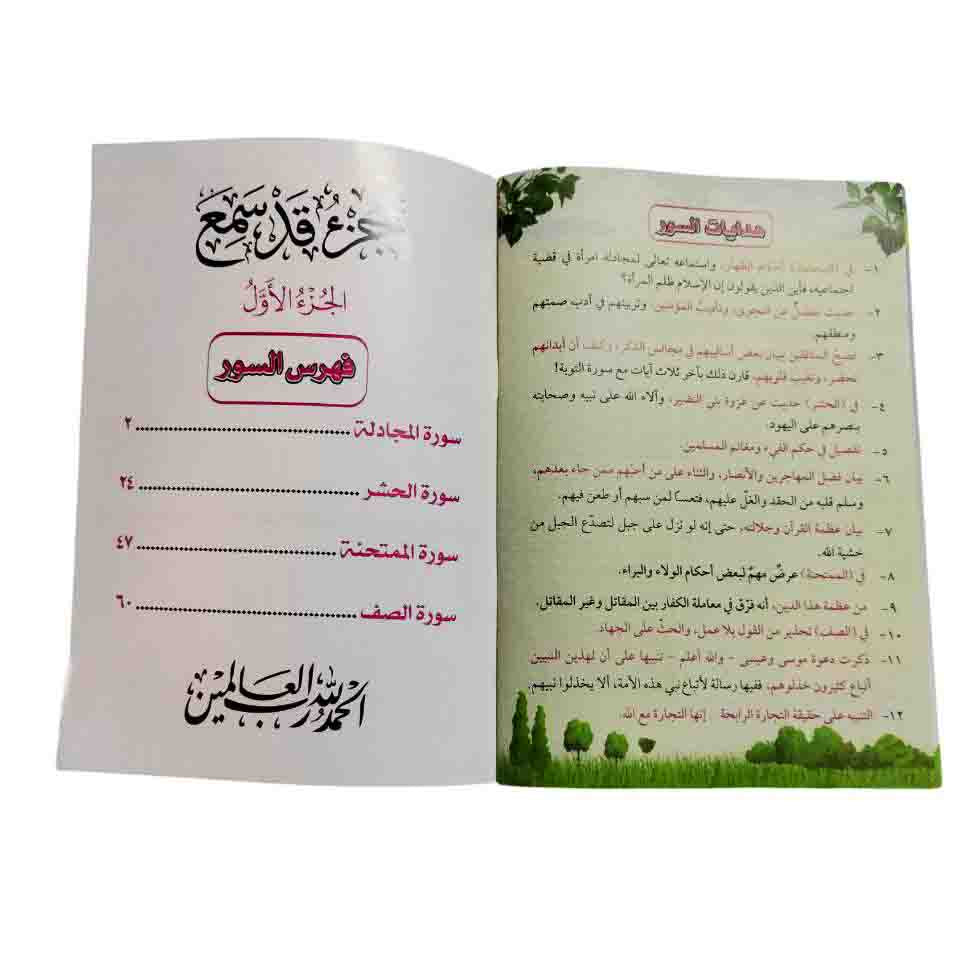 هدايات السور
١- في (المجادلة) أحكام الظهار، واستماعه تعالى لمجادلة امرأة في قضية
اجتماعية، فأين الذين يقولون إن الإسلام ظلم المرأة؟
٢- حديث مفصلٌ عن النجوى، وتأديبُ المؤمنين، وتربيتهم في أدب صمتهم
ومنطقهم.
٣- فضحُ المنافقين ببيان بعض أساليبهم في مجالس الذكر، وكيف أن أبدانهم
تحضر، وتغيب قلوبهم، قارن ذلك بآخر ثلاث آيات مع سورة التوبة!
٤- في (الحشر) حديث عن غزوة بني النضير، وآلاء الله على نبيه وصحابته
بنصرهم على اليهود.
٥- تفصيل في حكم الفيء ومغانم المسلمين.
٦- بيان فضل المهاجرين والأنصار، والثناء على من أحبّهم ممن جاء بعدهم،
وسلم قلبه من الحقد والغلّ عليهم، فتعساً لمن سبهم أو طعن فيهم.
٧- بيان عظمة القرآن وجلالته، حتى إنه لو نزل على جبل لتصدّع الجبل من
خشية الله.
٨- في (الممتحنة) عرضٌ مهمٌ لبعض أحكام الولاء والبراء.
٩- من عظمة هذا الدين، أنه فرّق في معاملة الكفار بين المقاتل وغير المقاتل.
١٠- في (الصف) تحذير من القول بلا عمل، والحثُّ على الجهاد.
١١- ذكرت دعوة موسى وعيسى - والله أعلم - تنبيها على أن لهذين النبيين
أتباع كثيرون خذلوهم، ففيها رسالة لأتباع نبي هذه الأمة، ألا يخذلوا نبيهم.
١٢- التنبيه على حقيقة التجارة الرابحة .. إنها التجارة مع الله.
جزء قد سمع
الجُزْءُ الأَوَّلُ
فهرس السور
سورة المجادلة ........ ٢
سورة الحشر ........ ٢٤
سورة الممتحنة ........ ٤٧
سورة الصف ........ ٦٠
الحمد لله رب العالمين